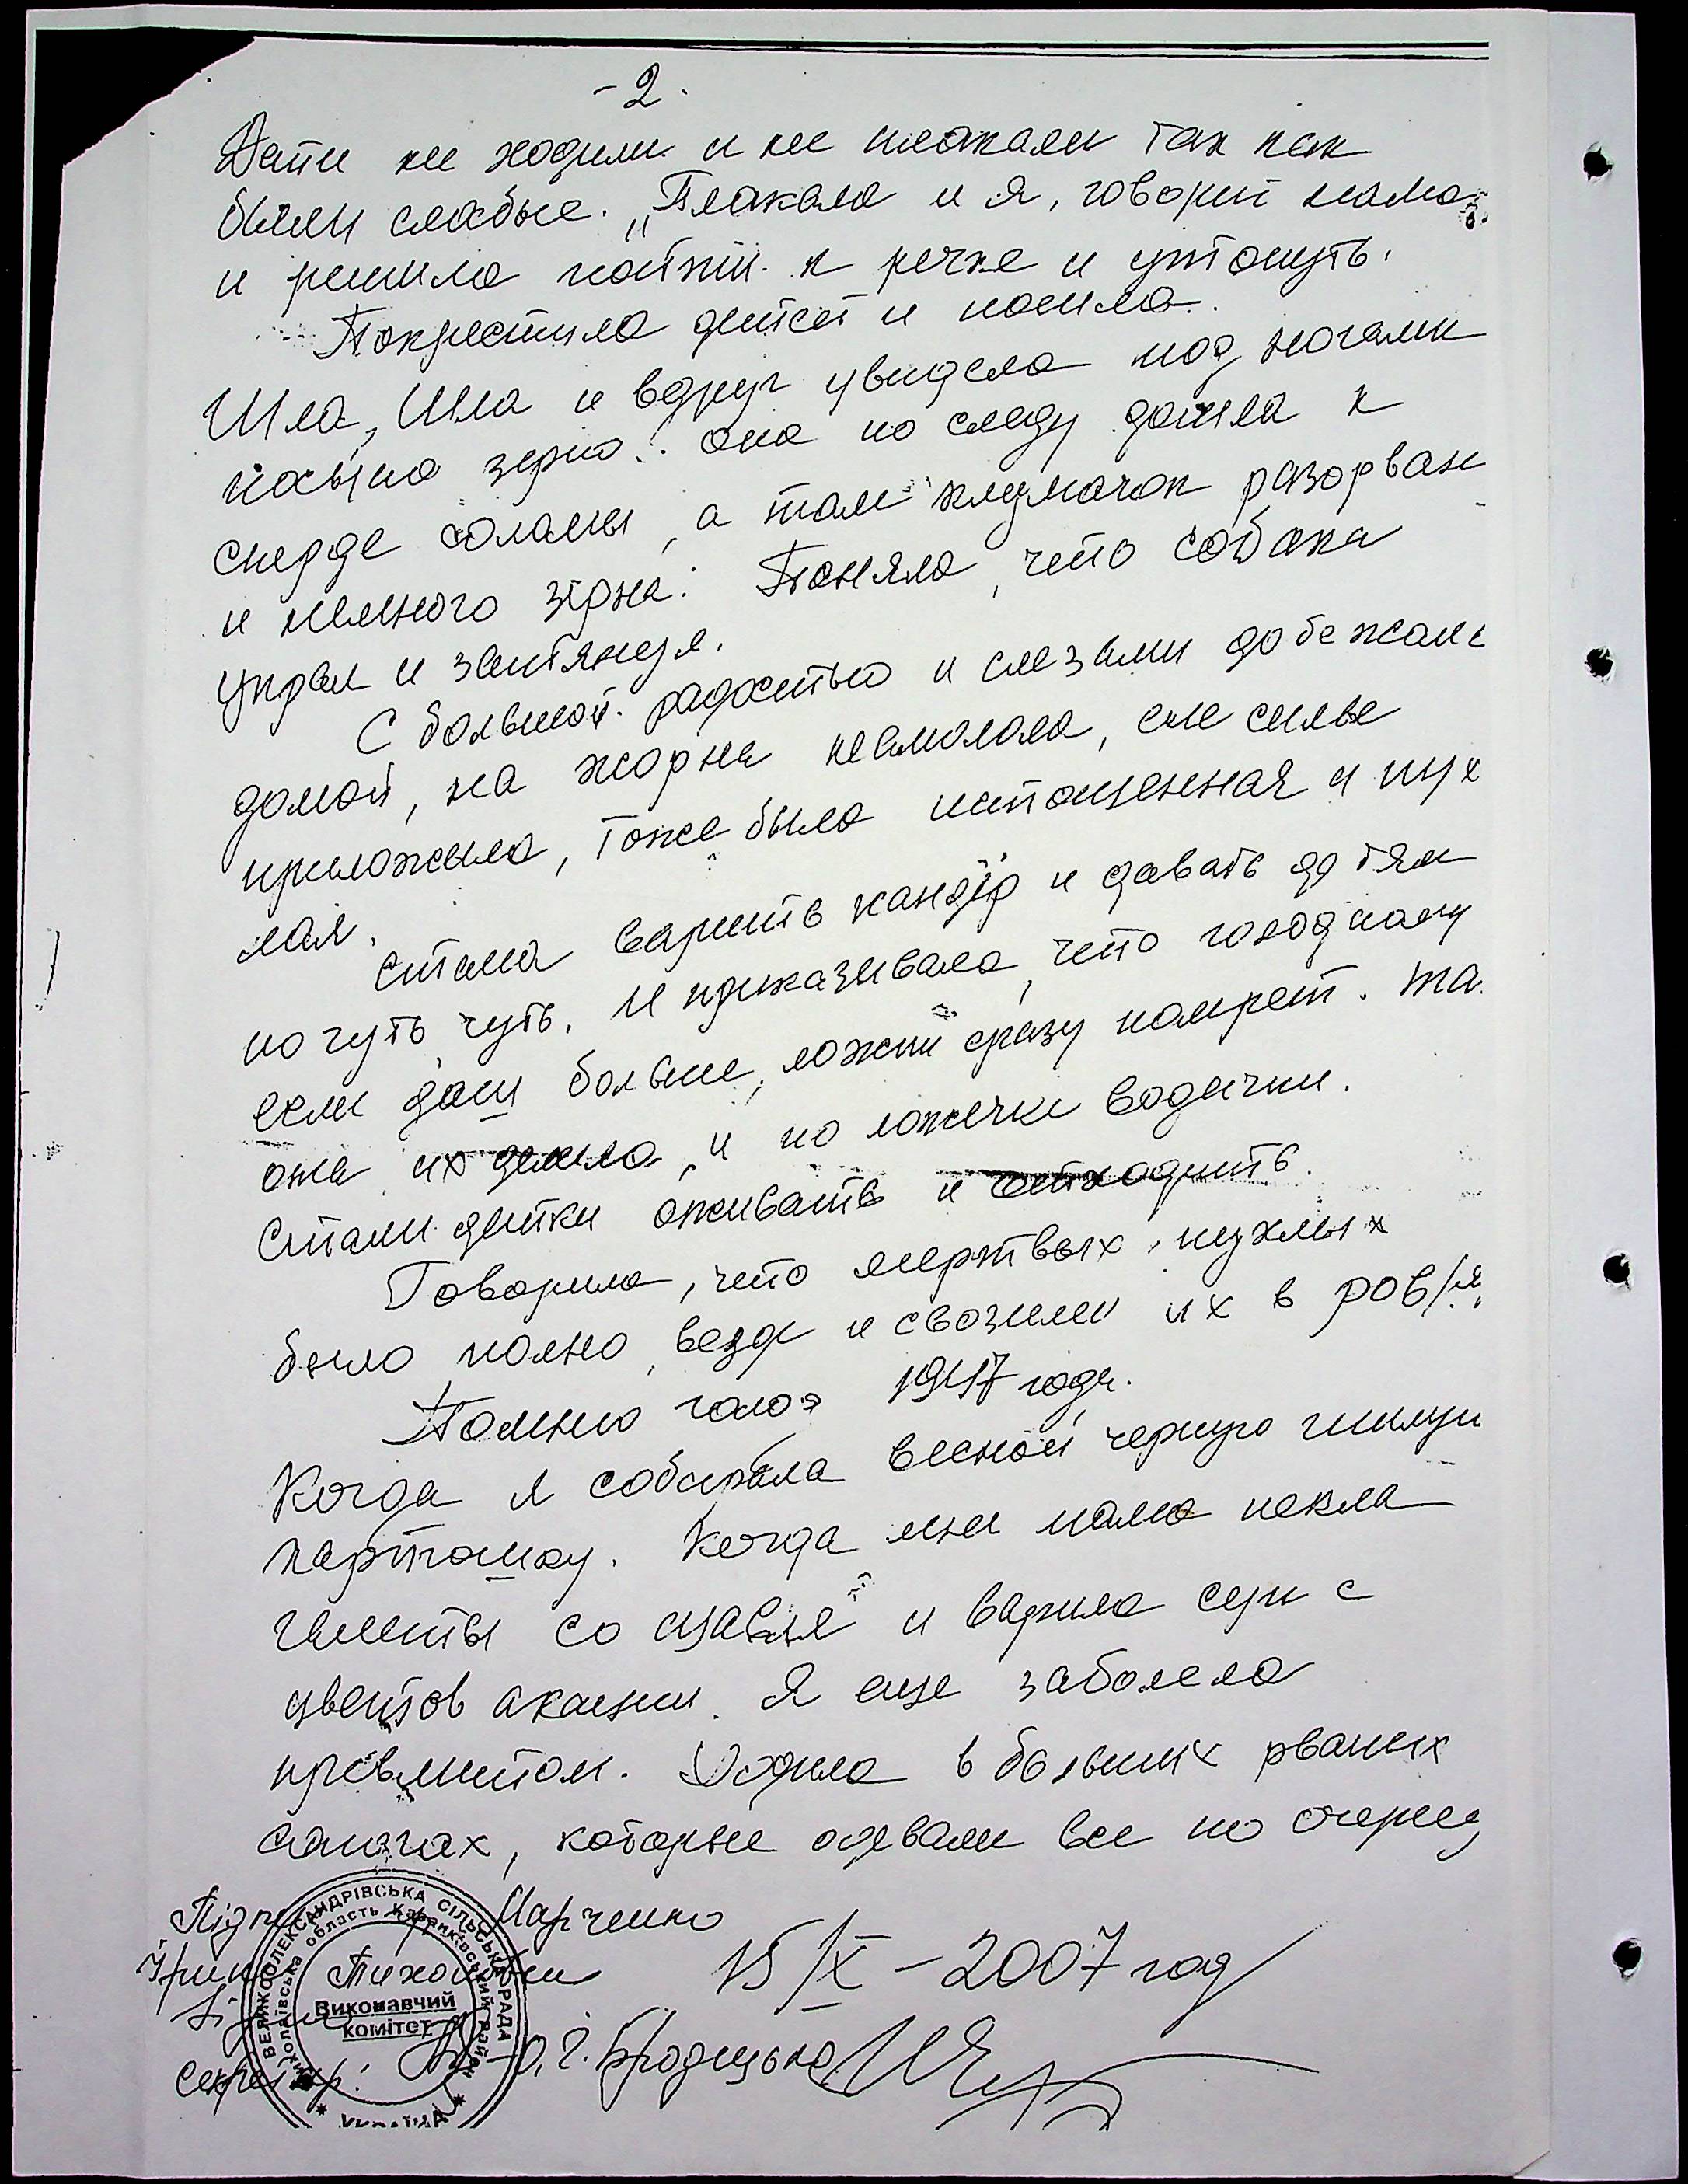 - 2 -
Дети не ходили и не плакали так как
были слабые. „Плакала и я, говорит мама
и решила пойти к речке и утонуть.
Покрестила детей и пошла.
Шла, шла и вдруг увидела под ногами
посыпа зерно. она по следу дошла к
скерде соломы, а там клумачок разорван
и немного зерна. Поняла, что собака
украл и затянул.
С большой радостью и слезами добежала
домой, на жорна намолола, еле силы
приложила, тоже была истощенная и пух
лая.
Стала варить кандёр и давать детям
по чуть чуть. И приказывала, что голодному
если даш больше, ложки сразу помрет. Та
она их делила, и по ложечке водички.
Стали детки оживать и отходить.
Говорила, что мертвых, пухлых
было полно везде и свозили их в ров/я
Помню голод 1947 года.
Когда я собирала весной черную гнилую
картошку. Когда мне мама пекла
галеты со щавля и варила суп с
цветов акации. Я еще заболела
Ходила в больших рваных
сапогах, которые одевали все по очереди
Підпис Марченко
Тихоновни
15/X – 2007 год
Секретар: О.Г. Бродецька
ВЕЛИКООЛЕКСАНДРІВСЬКА СІЛЬСЬКА РАДА
Миколаївська область район
Виконавчий
комітет
УКРАЇНА